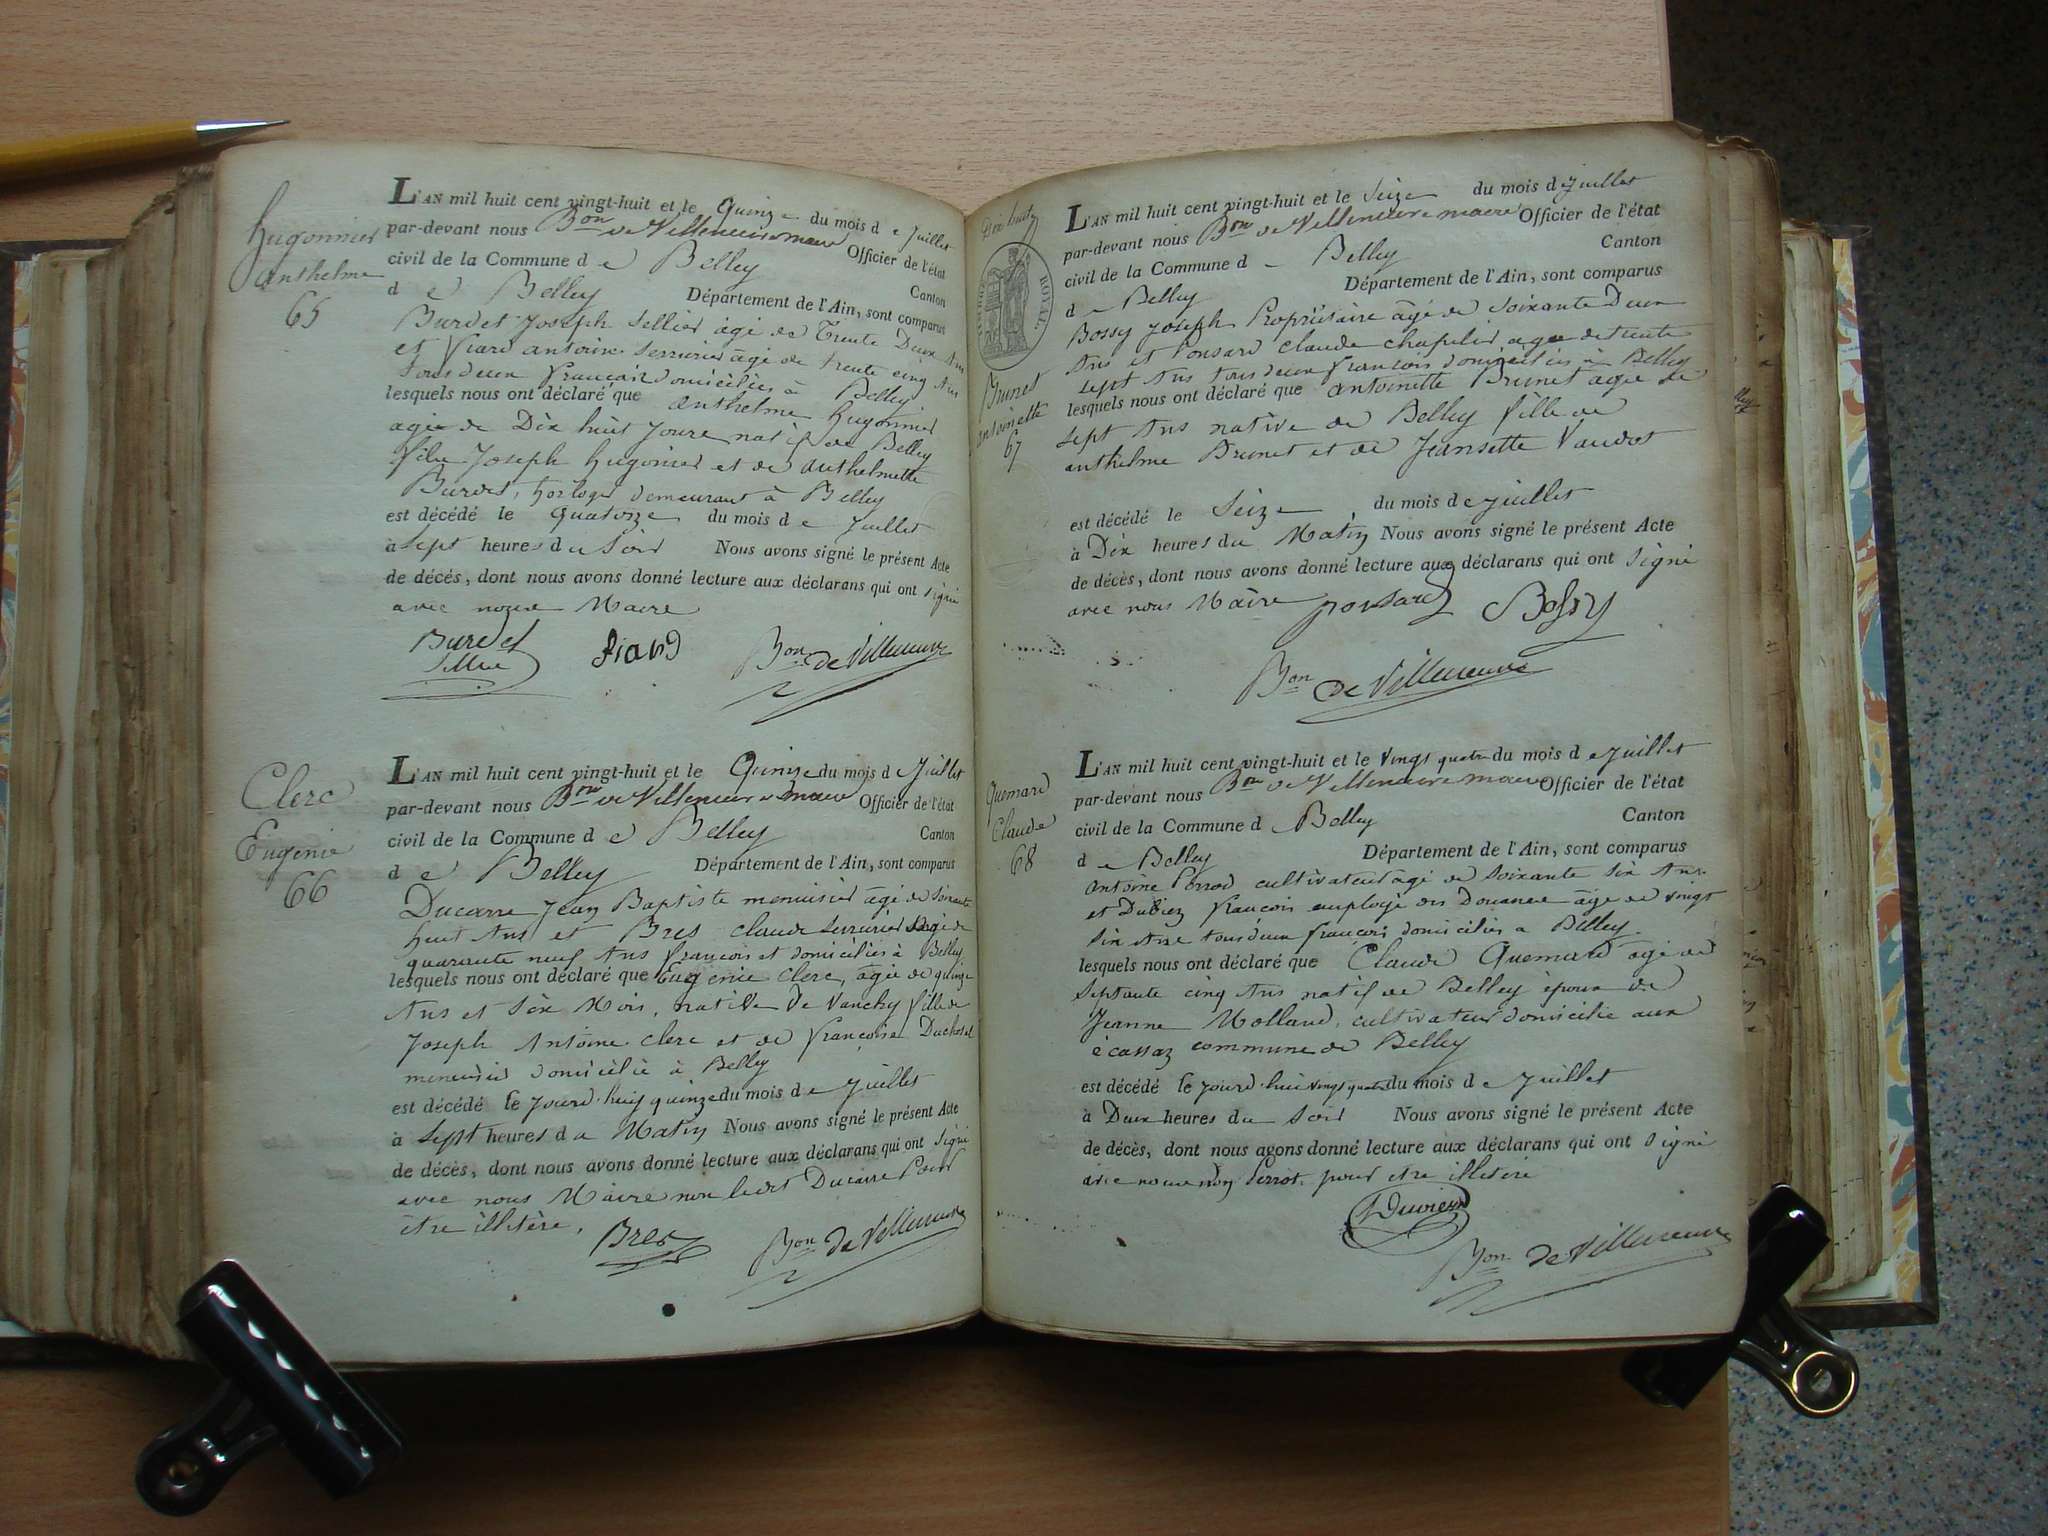 Hugonnier
anthelme
65
L'AN mil huit cent vingt-huit et le Quinze du mois de Juillet
par-devant nous Bon de Villeneuve maire Officier de l'état
civil de la Commune de Belley Canton
de Belley Département de l'Ain, sont comparus
Burdet Joseph Sellier agé de Trente Deux Ans
et Viard antoine Serrurier âgé de trente cinq Ans
tous deux français domiciliés à Belley
lesquels nous ont déclaré que anthelme Hugonnier
agé de Dix huit Jours natif de Belley
fils Joseph hugonier et de anthelmette
Burdet, horloger demeurant à Belley
est décédé le quatorze du mois de Juillet
à Sept heures du Soir Nous avons signé le présent Acte
de décés, dont nous avons donné lecture aux déclarans qui ont signé
avec nous Maire
Burdet
Sellier
Viard
Bon de Villeneuve
Clerc
Eugénie
66
L'AN mil huit cent vingt-huit et le Quinze du mois de Juillet
par-devant nous Bon de Villeneuve maire Officier de l'état
civil de la Commune de Belley Canton
de Belley Département de l'Ain, sont comparus
Ducarre Jean Baptiste menuisier âgé de Soixante
huit Ans et Bres claude Serrurier agé de
quarante neuf Ans français et domiciliés à Belley
lesquels nous ont déclaré que Eugenie Clerc, agée de quinze
Ans et Six Mois, native de Vanchy fille de
Joseph Antoine Clerc et de françoise
menuisier domicilié à Belley
est décédé le Jourd'huy quinze du mois de Juillet
à Sept heures du Matin Nous avons signé le présent Acte
de décès, dont nous avons donné lecture aux déclarans qui ont Signé
avec nous Maire non ledit Ducarre Pour
être illitère.
Bres
Bon de Villeneuve
Dix huit
ROYAL
Brunet
Antoinette
67
L'AN mil huit cent vingt-huit et le Seize du mois de Juillet
par-devant nous Bon de Villeneuve maire Officier de l'état
civil de la Commune d Belley Canton
de Belley Département de l'Ain, sont comparus
Bossy Joseph Propriétaire âgé de Soixante Deux
Ans et Ponsard Claude chapelier age de trente
sept Ans tous deux françois domiciliés à Belley
lesquels nous ont déclaré que antoinette Brunet âgée de
Sept Ans native de Belley fille de
anthelme Brunet et de Jeansette Vaudot
est décédé le Seize du mois de Juillet
à Dix heures du Matin Nous avons signé le présent Acte
de décès, dont nous avons donné lecture aux déclarans qui ont Signé
avec nous Maire ponsard Bossy
Bon de Villeneuve
Quemard
Claude
68
L'AN mil huit cent vingt-huit et le vingt quatre du mois de Juillet
par-devant nous Bon de Villeneuve maire Officier de l'état
civil de la Commune de Belley Canton
de Belley Département de l'Ain, sont comparus
antoine Perrod cultivateur âgé de Soixante Six Ans
et françois employé des Douanes âgé de vingt
Six Ans tous deux françois domiciliés a Belley.
lesquels nous ont déclaré que Claude Quemard agé de
Septante cinq Ans natif de Belley époux de
Jeanne Molland, cultivateur domicilié aux
écassaz commune de Belley
est décédé le Jourd'hui vingt quatre du mois de Juillet
à Deux heures du Soir Nous avons signé le présent Acte
de décès, dont nous avons donné lecture aux déclarans qui ont signé
avec nous non Perrot pour etre illitere
Bon de Villeneuve